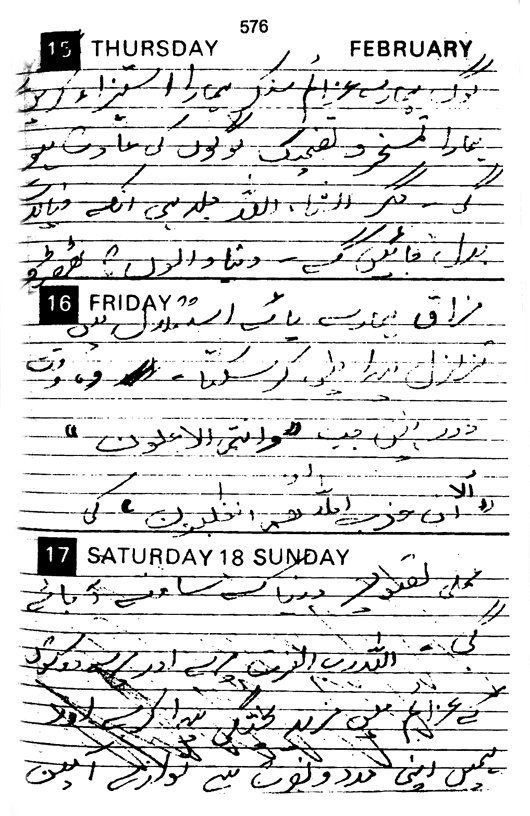 576
15 THURSDAY FEBRUARY
لوگ ہمارے عزائم سنکر ہمارا استہزاء کریں
ہمارا تمسخر و تضحیک لوگوں کی عادت ہو
گی - مگر انشاء اللہ جلد ہی انکے
بدل جائیں گے - دنیا والوں کا
16 FRIDAY
مزاق ہمارے پائے استقلال میں
تزلزل پیدا نہیں کر سکتا - وہ وقت
دور نہیں جب "وانتم الاعلون"
"الا ان حزب اللہ هم الغلبون" کی
17 SATURDAY 18 SUNDAY
عملی تصویر دنیا کے سامنے آ جائے
گی - اللہ رب العزت میرے اور میرے دوستوں
کے عزائم میں مزید پختگی پیدا کرے اور
ہمیں اپنی مدد و نصرت سے نوازے آمین